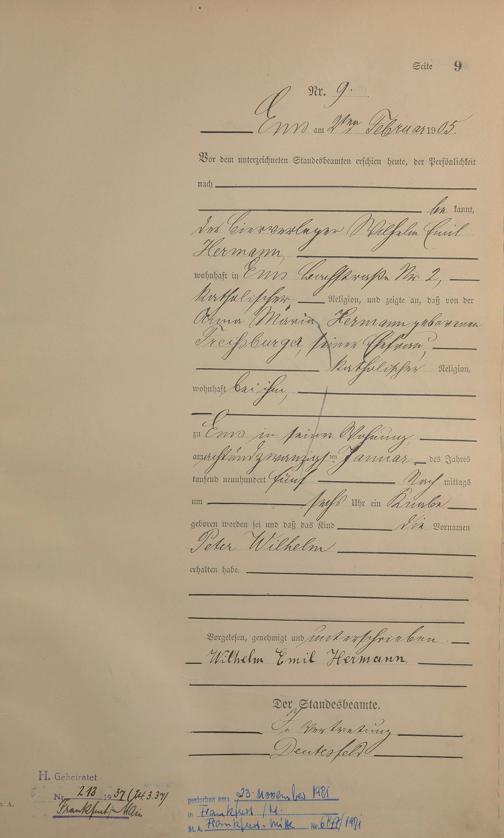 Seite 9
Nr. 9.
Ems am 2ten Februar 1905.
Vor dem unterzeichneten Standesbeamten erschien heute, der Persönlichkeit
nach
be kannt,
der Bierverleger Wilhelm Emil
Hermann,
wohnhaft in Ems Bachstraße Nr. 2,
katholischer Religion, und zeigte an, daß von der
Anna Maria Hermann geborenen
seiner Ehefrau,
katholischer Religion,
wohnhaft bei ihm,
zu Ems in seiner Wohnung
am achtundzwanzigsten Januar des Jahres
tausend neunhundert fünf Nach mittags
um sechs Uhr ein Knabe
geboren worden sei und daß das Kind die Vornamen
Peter Wilhelm
erhalten habe.
Vorgelesen, genehmigt und unterschrieben
Wilhelm Emil Hermann
Der Standesbeamte.
In Vertretung
H. Geheiratet
Nr. 213 1937 (24.3.37)
Frankfurt/Main
gestorben am: 23. November 1981
in Frankfurt /M.
St.A. Frankfurt-Mitte No 6747/1981